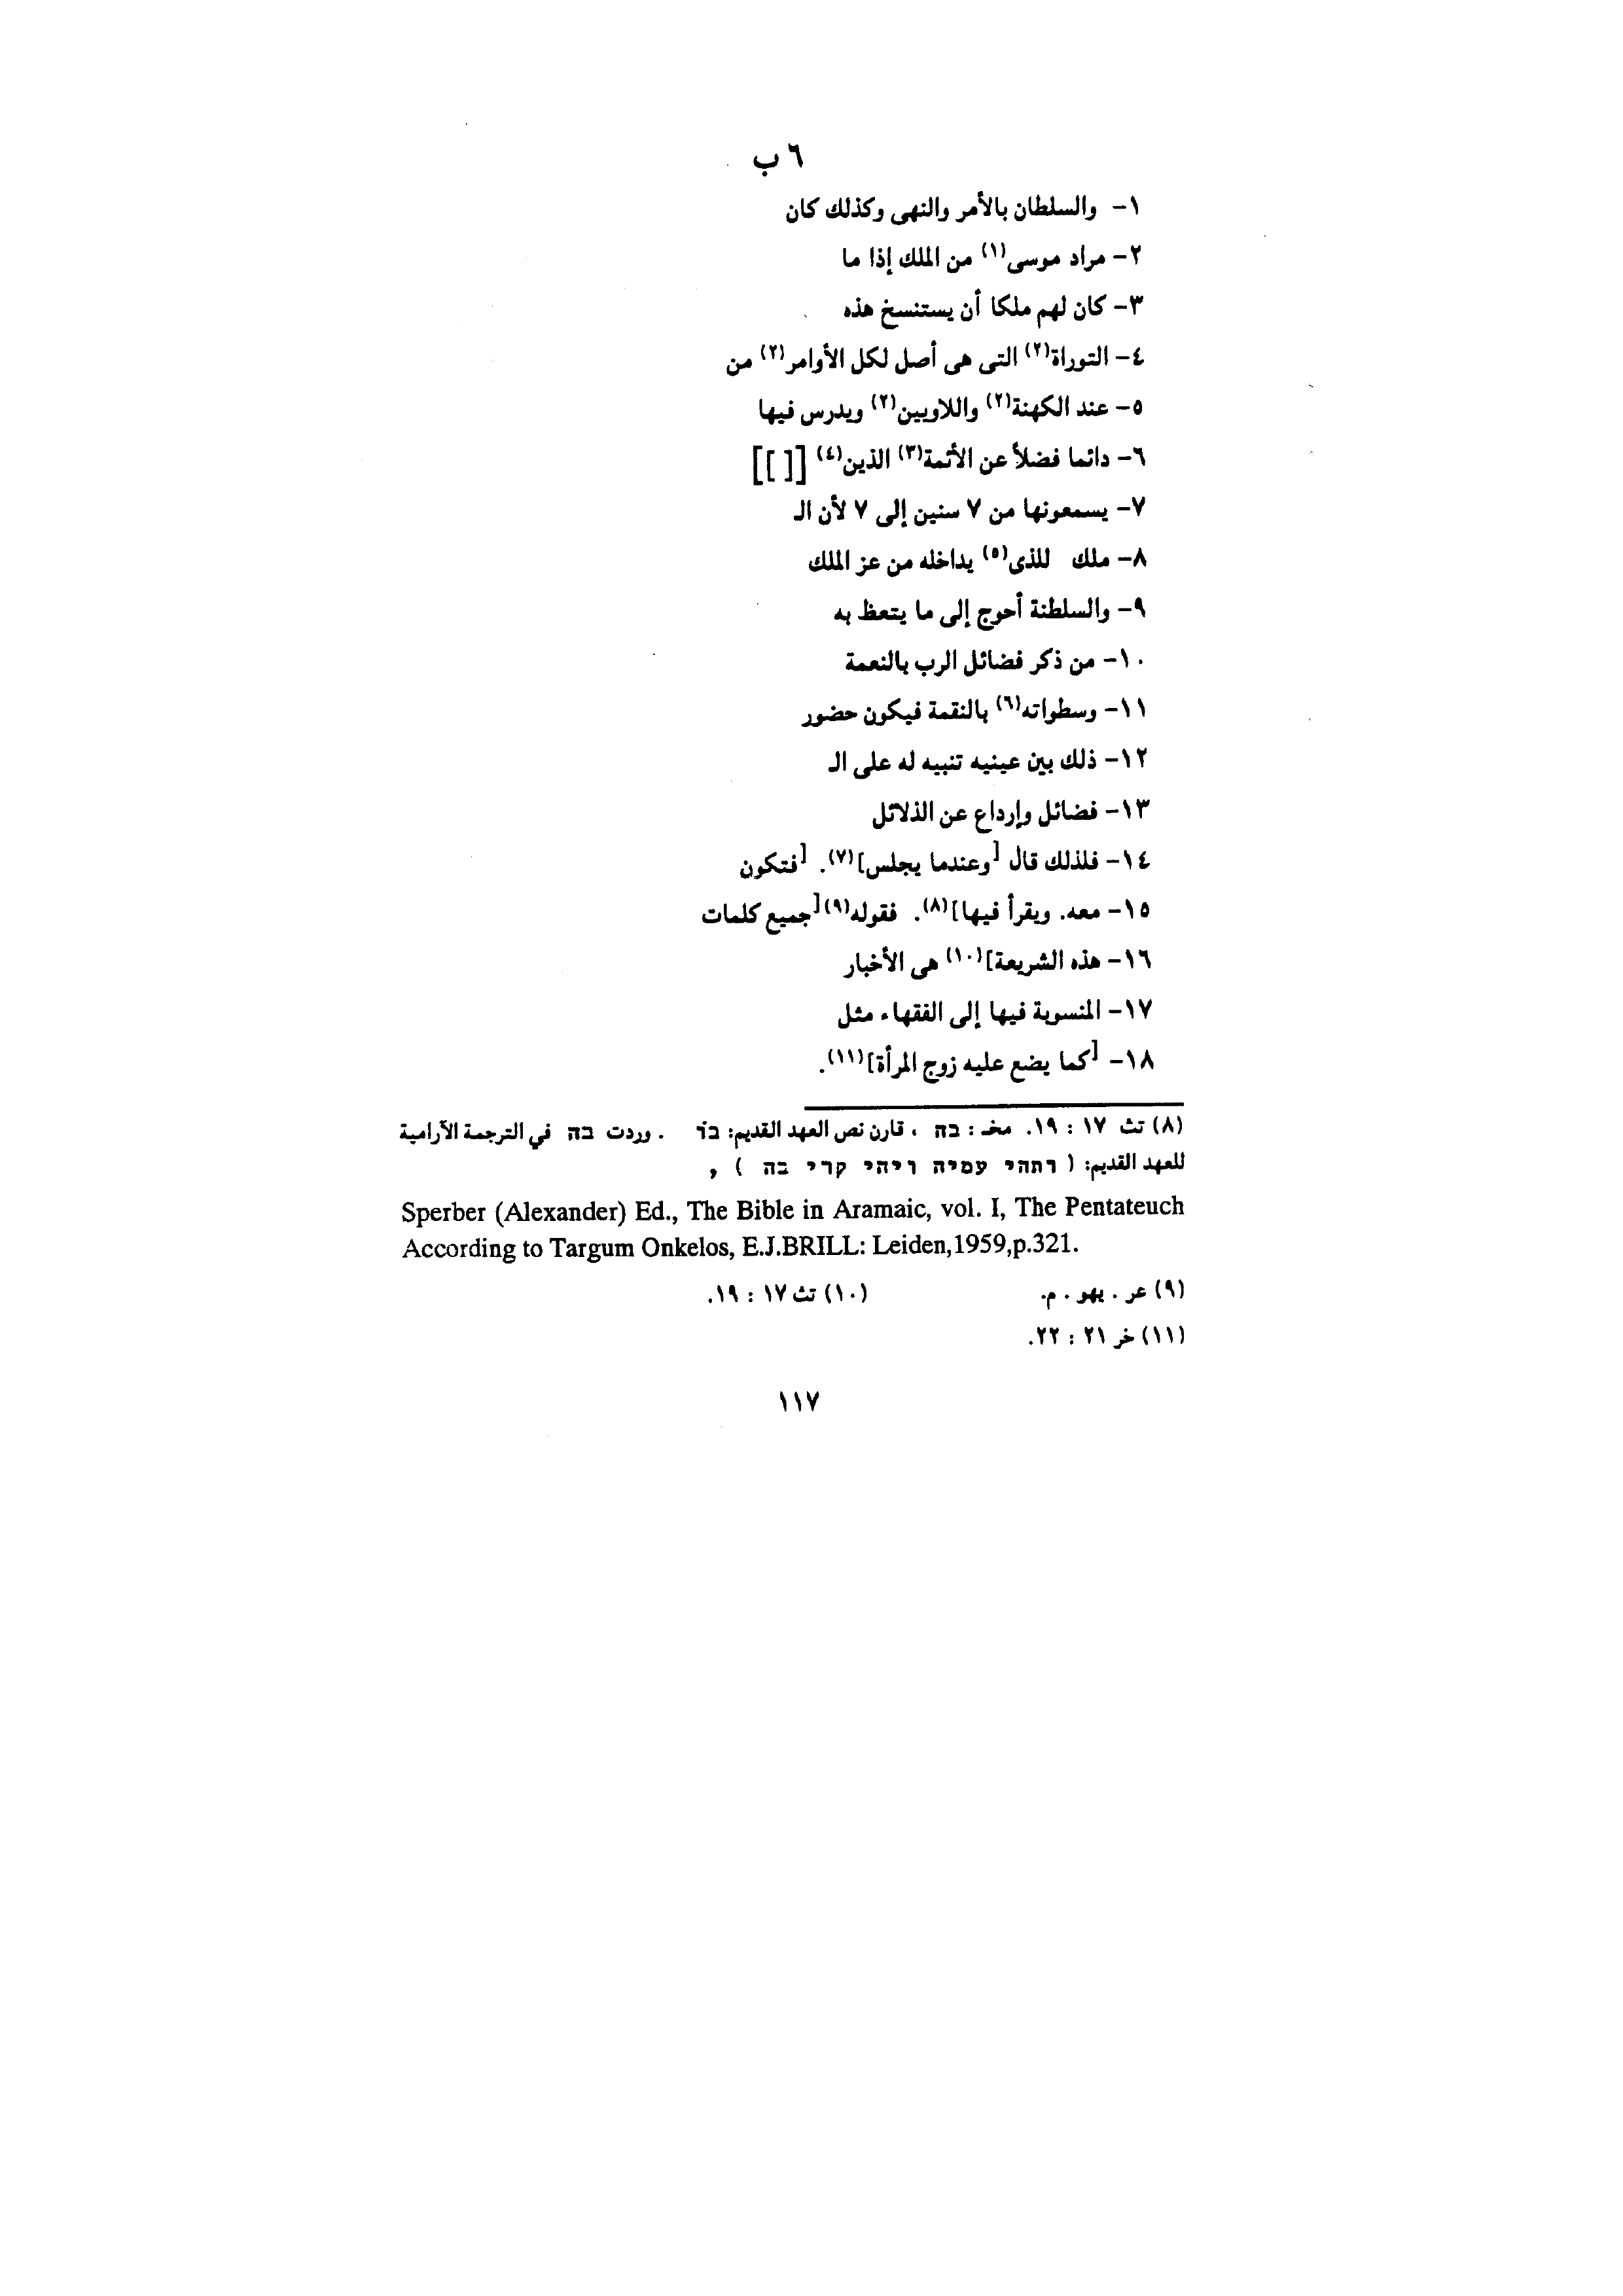 ٦ ب
١- والسلطان بالأمر والنهى وكذلك كان
٢- مراد موسى(١) من الملك إذا ما
٣- كان لهم ملكا أن يستنسخ هذه
٤- التوراة(٢) التى هى أصل لكل الأوامر(٢) من
٥- عند الكهنة(٢) واللاويين(٢) ويدرس فيها
٦- دائما فضلاً عن الأئمة(٣) الذين(٤) [[ ]]
٧- يسمعونها من ٧ سنين إلى ٧ لأن الـ
٨- ملك للذى(٥) يداخله من عز الملك
٩- والسلطنة أحوج إلى ما يتعظ به
١٠- من ذكر فضائل الرب بالنعمة
١١- وسطواته(٦) بالنقمة فيكون حضور
١٢- ذلك بين عينيه تنبيه له على الـ
١٣- فضائل وإرداع عن الذلائل
١٤- فلذلك قال [وعندما يجلس](٧). [فتكون
١٥- معه. ويقرأ فيها](٨). فقوله(٩)[جميع كلمات
١٦- هذه الشريعة](١٠) هى الأخبار
١٧- المنسوبة فيها إلى الفقهاء مثل
١٨- [كما يضع عليه زوج المرأة](١١).
(٨) تث ١٧ : ١٩. مخـ : בה ، قارن نص العهد القديم: בו . وردت בה في الترجمة الآرامية
للعهد القديم: ( ותהי עמיה ויהי קרי בה ) ,
Sperber (Alexander) Ed., The Bible in Aramaic, vol. I, The Pentateuch
According to Targum Onkelos, E.J.BRILL: Leiden,1959,p.321.
(٩) عر . يهو . م. (١٠) تث ١٧ : ١٩.
(١١) خر ٢١ : ٢٢.
١١٧